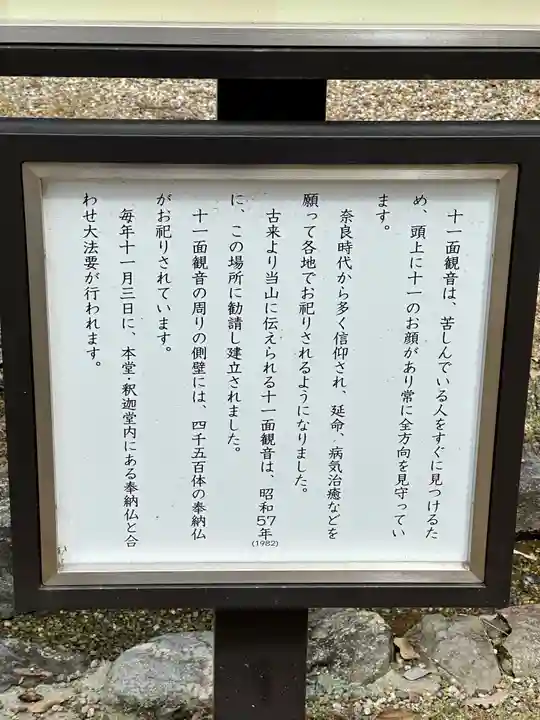 十一面観音は、苦しんでいる人をすぐに見つけるた
め、頭上に十一のお顔があり常に全方向を見守ってい
ます。
奈良時代から多く信仰され、延命、病気治癒などを
願って各地でお祀りされるようになりました。
古来より当山に伝えられる十一面観音は、昭和57年(1982)
に、この場所に勧請し建立されました。
十一面観音の周りの側壁には、四千五百体の奉納仏
がお祀りされています。
毎年十一月三日に、本堂・釈迦堂内にある奉納仏と合
わせ大法要が行われます。